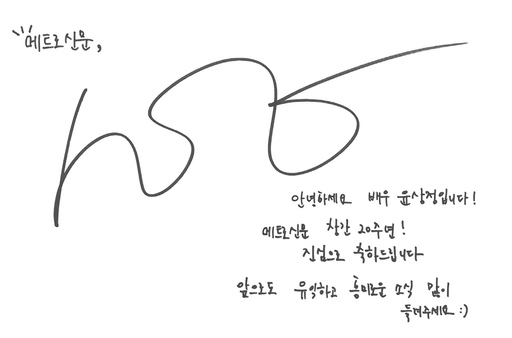 메트로신문,
안녕하세요 배우 윤상정입니다!
메트로신문 창간 20주년!
진심으로 축하드립니다
앞으로도 유익하고 흥미로운 소식 많이
들려주세요 :)